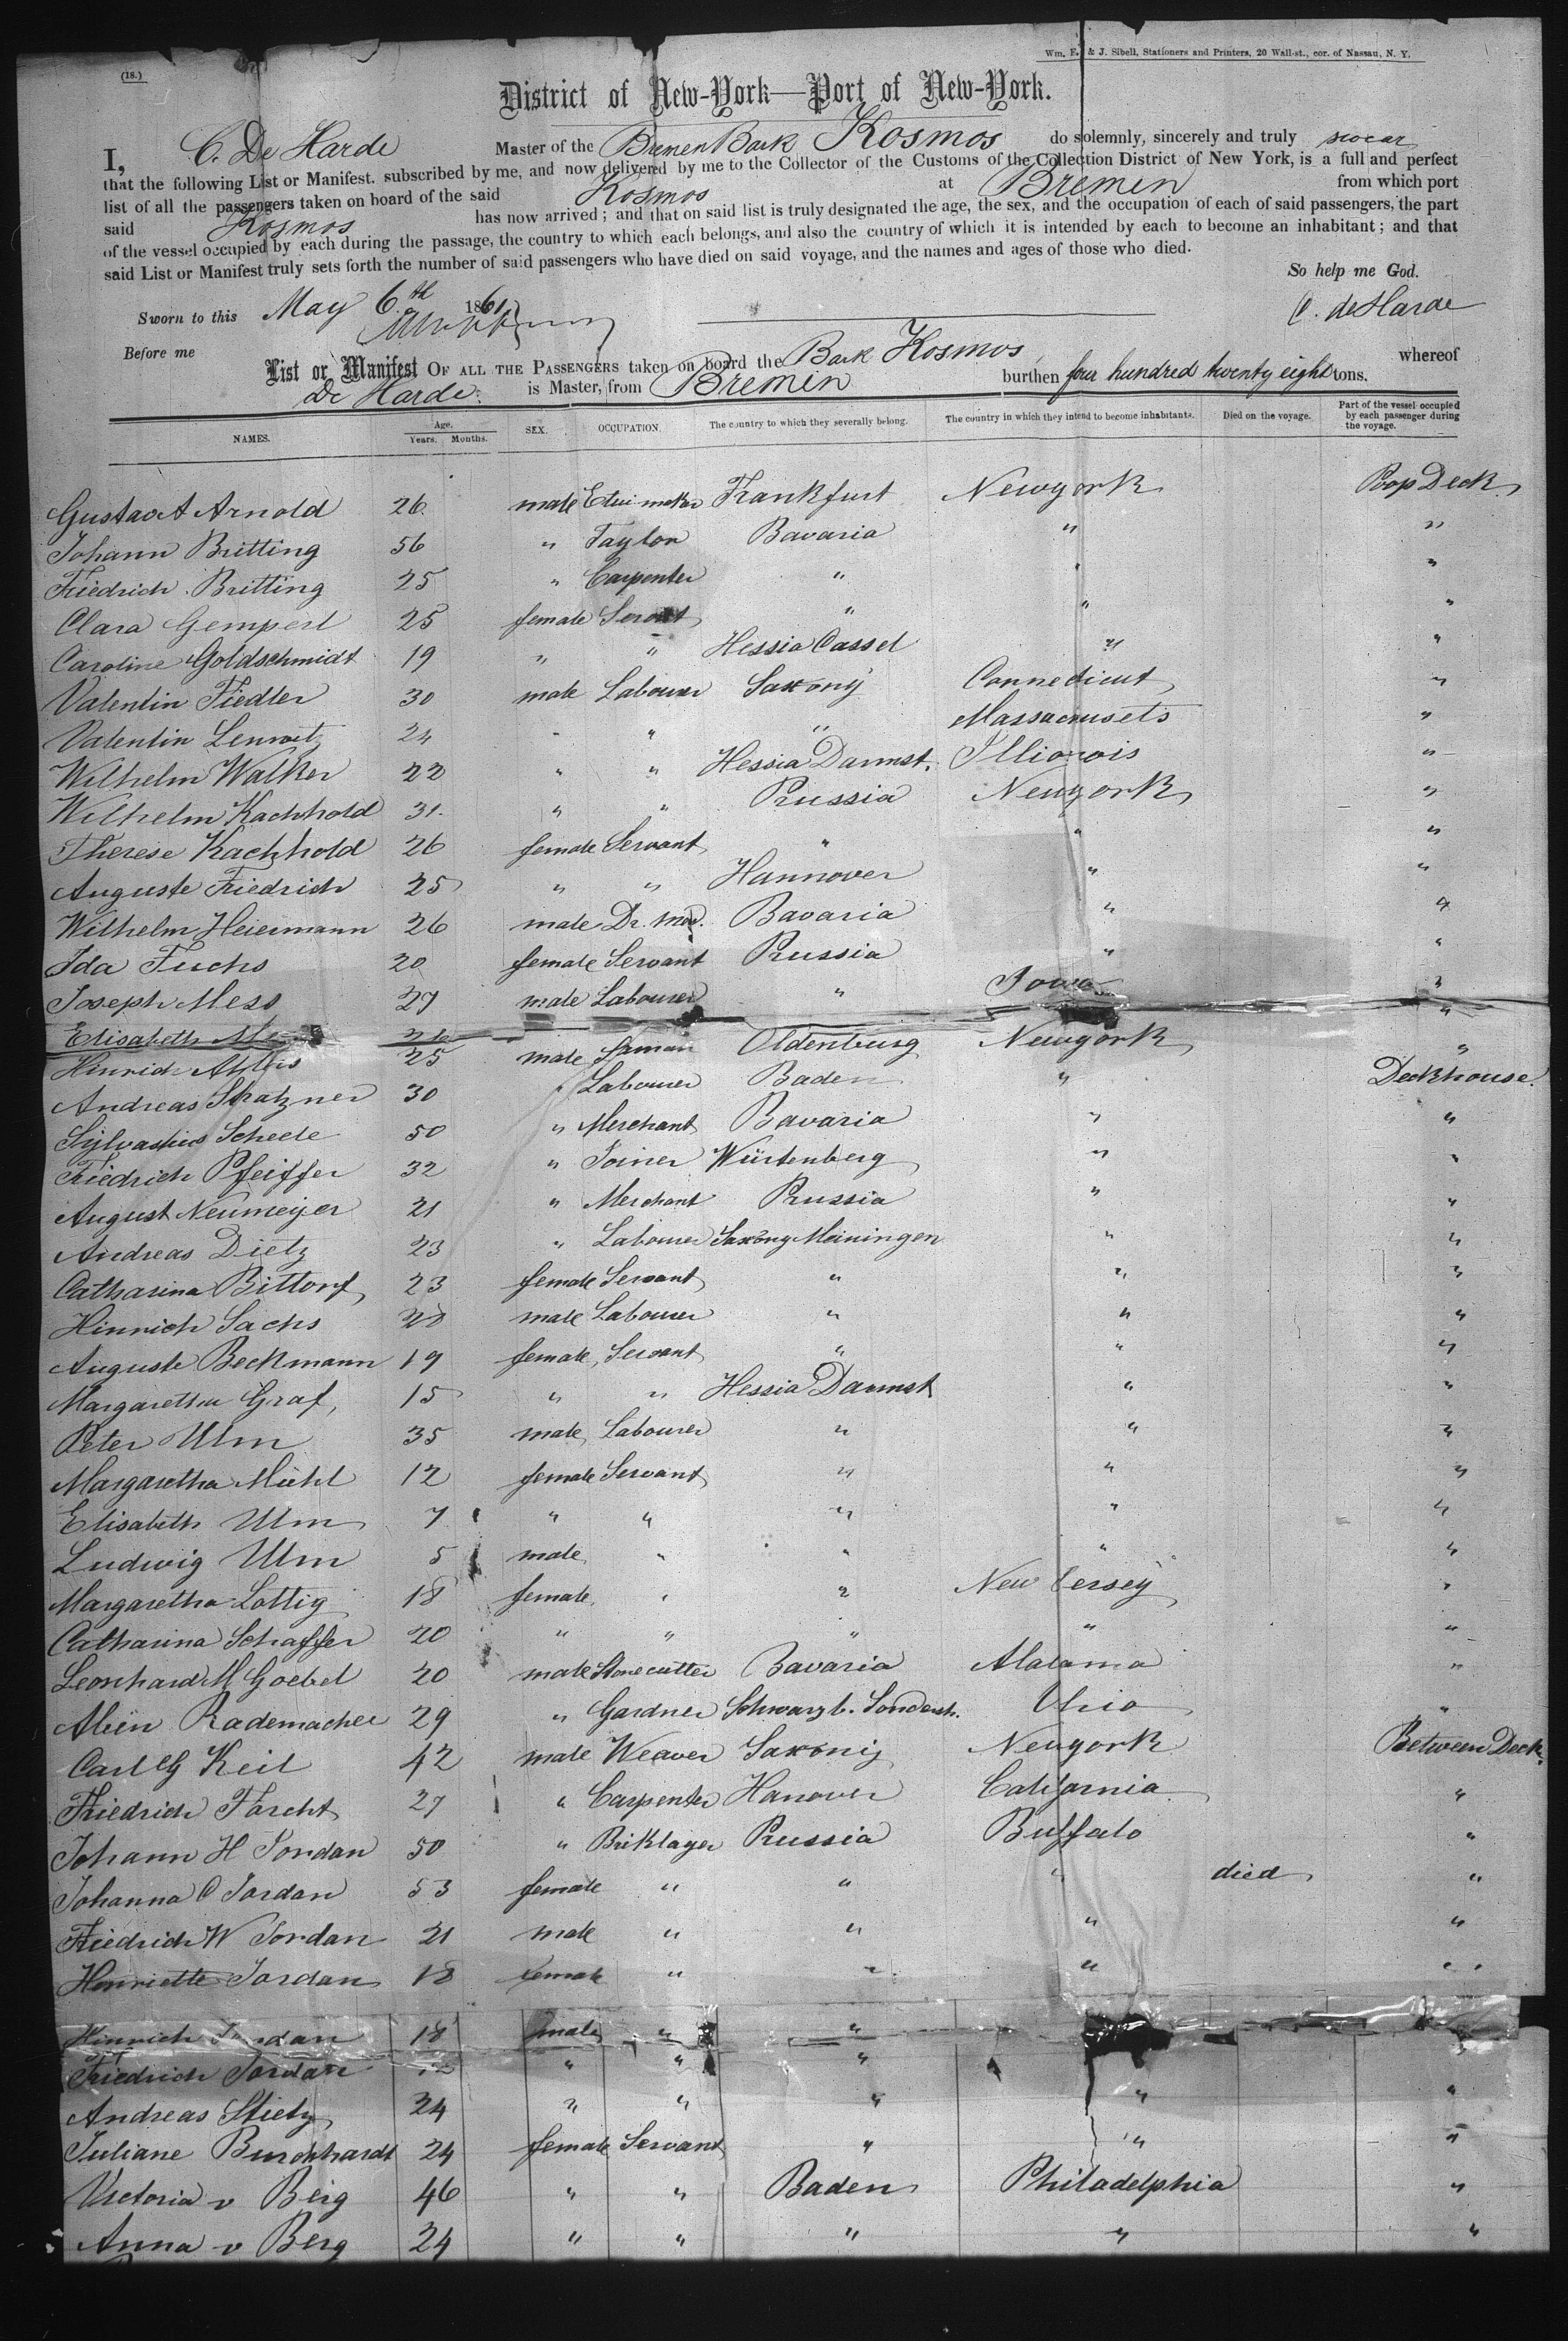 (18.)
Wm. E. & J. Sibell, Stationers and Printers, 20 Wall-st., cor. of Nassau, N. Y.
District of New-York—Port of New-York.
I, C. De Harde Master of the Bremen Bark Kosmos do solemnly, sincerely and truly swear
that the following List or Manifest. subscribed by me, and now delivered by me to the Collector of the Customs of the Collection District of New York, is a full and perfect
list of all the passengers taken on board of the said Kosmos at Bremen from which port
said Kosmos has now arrived; and that on said list is truly designated the age, the sex, and the occupation of each of said passengers, the part
of the vessel occupied by each during the passage, the country to which each belongs, and also the country of which it is intended by each to become an inhabitant; and that
said List or Manifest truly sets forth the number of said passengers who have died on said voyage, and the names and ages of those who died.
So help me God.
Sworn to this May 6th 1861
C. de Harde
Before me
List or Manifest OF ALL THE PASSENGERS taken on board the Bark Kosmos whereof
De Harde is Master, from Bremen burthen four hundred twenty eight tons.
NAMES. Age. Years. Months. SEX. OCCUPATION. The country to which they severally belong. The country in which they intend to become inhabitants. Died on the voyage. Part of the vessel occupied by each passenger during the voyage.
Gustav A Arnold 26 male Etui maker Frankfurt Newyork Poop Deck
Johann Britting 56 " Taylor Bavaria " "
Friedrich Britting 25 " Carpenter " " "
Clara Gemperl 25 female Servant " " "
Caroline Goldschmidt 19 " " Hessia Cassel " "
Valentin Fiedler 30 male Labourer Saxony Connedicut "
Valentin 24 " " " Massacnusets "
Wilhelm Walker 22 " " Hessia Darmst. Illionois "
Wilhelm Kachhold 31 " " Prussia Newyork "
Therese Kachhold 26 female Servant " " "
Auguste Friedrich 25 " " Hannover " "
Wilhelm Heiermann 26 male Dr. med. Bavaria " "
Ida Fuchs 20 female Servant Prussia " "
Joseph Mess 27 male Labourer " Iowa "
Elisabeth "
Hinrich Ahlers 25 male Oldenburg Newyork "
Andreas Stratzner 30 " Labourer Baden " Deckhouse
Scheele 50 " Merchant Bavaria " "
Friedrich Pfeiffer 32 " Joiner Würtenberg " "
August Neumeijer 21 " Merchant Prussia " "
Andreas Dietz 23 " Labourer Saxony Meiningen " "
Catharina Bittorf 23 female Servant " " "
Hinrich Sachs 28 male Labourer " " "
Auguste Beckmann 19 female Servant " " "
Margaretha Graf 15 " " Hessia Darmst " "
Peter Ulm 35 male Labourer " " "
Margaretha Mühl 12 female Servant " " "
Elisabeth Ulm 7 " " " " "
Ludwig Ulm 5 male " " " "
Margaretha Lottig 18 female " " New Jersey "
Catharina Schaffer 20 " " " " "
Leonhard M Goebel 20 male Stonecutter Bavaria Alabama "
Rademacher 29 " Gardner Schwarzb. Sondersh. Ohio "
Carl G Keil 42 male Weaver Saxony Newyork Between Deck
Friedrich Farcht 27 " Carpenter Hanover California "
Johann H Jordan 50 " Briklayer Prussia Buffalo "
Johanna C Jordan 53 female " " " died "
Friedrich W Jordan 21 male " " " "
Henriette Jordan 18 female " " " "
Hinrich Jordan 18 male " "
Friedrich Jordan " " "
Andreas Stietz 24 " " " " "
Juliane Burckhardt 24 female Servant " " "
Victoria v Berg 46 " " Baden Philadelphia "
Anna v Berg 24 " " " " "